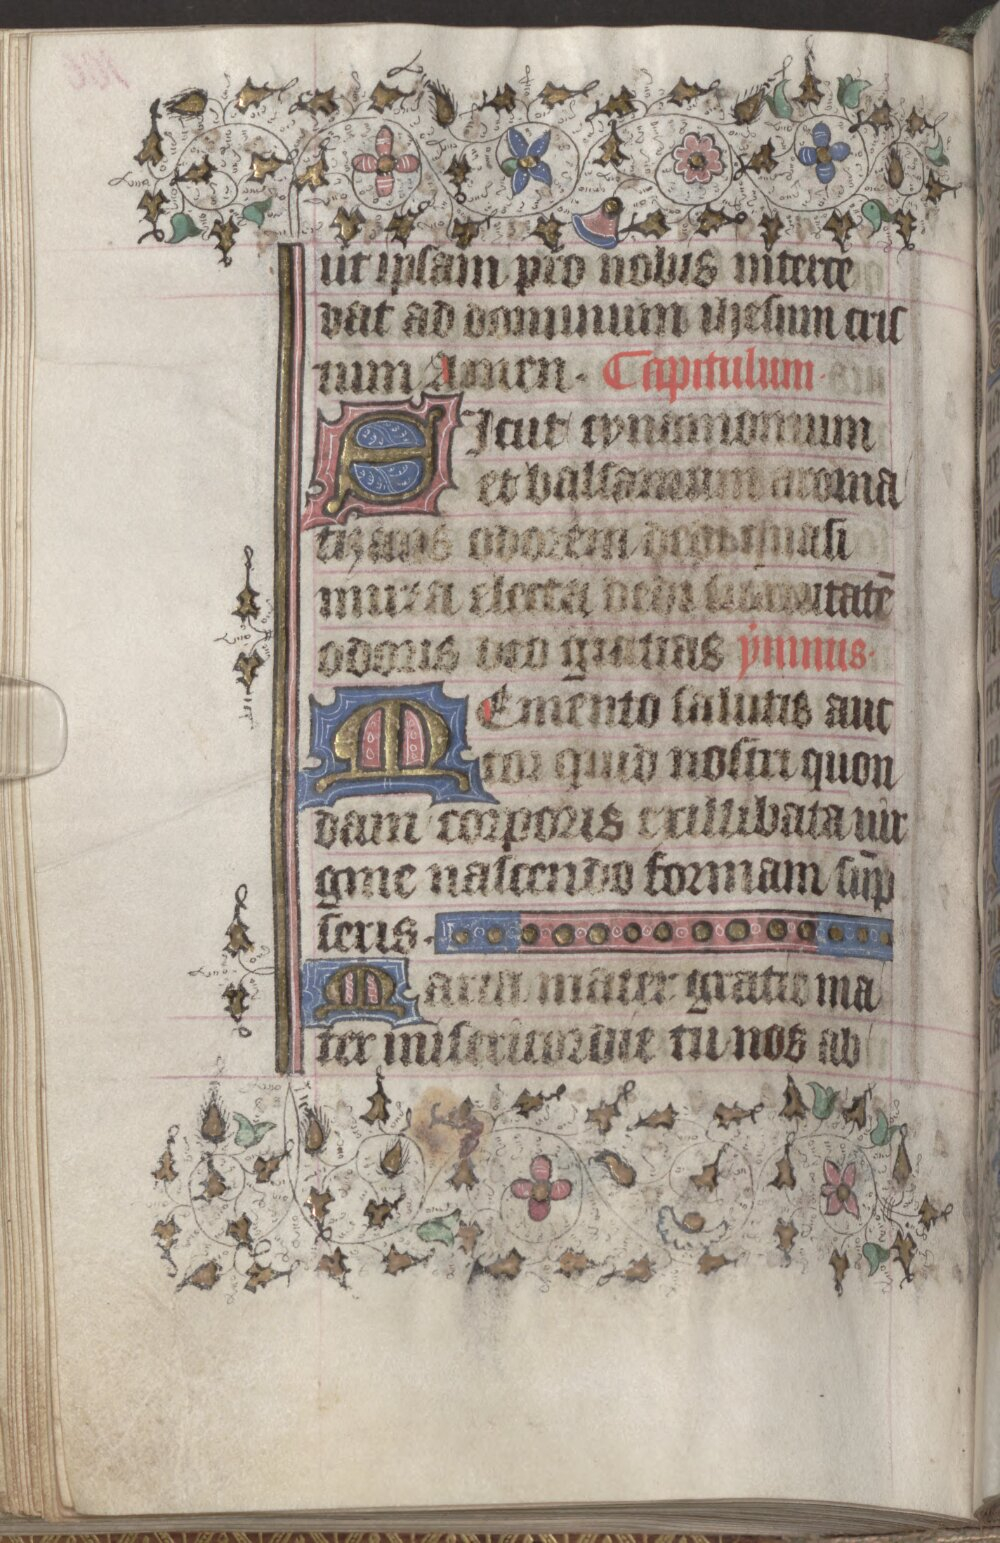 ut ipsam pro nobis interce
dat ad dominum ihesum cris
tum Amen. Capitulum.
SIcut cynamomum
et balsamum aroma
tizans odorem dedi quasi
mirra electa dedi suavitatē
odoris deo gratias ẏmnus.
MEmento salutis auc
tor quid nostri quon
dam corporis exillibata uir
gine nascendo formam sūp
seris.
Maria mater gratie ma
ter misericordie tu nos ab